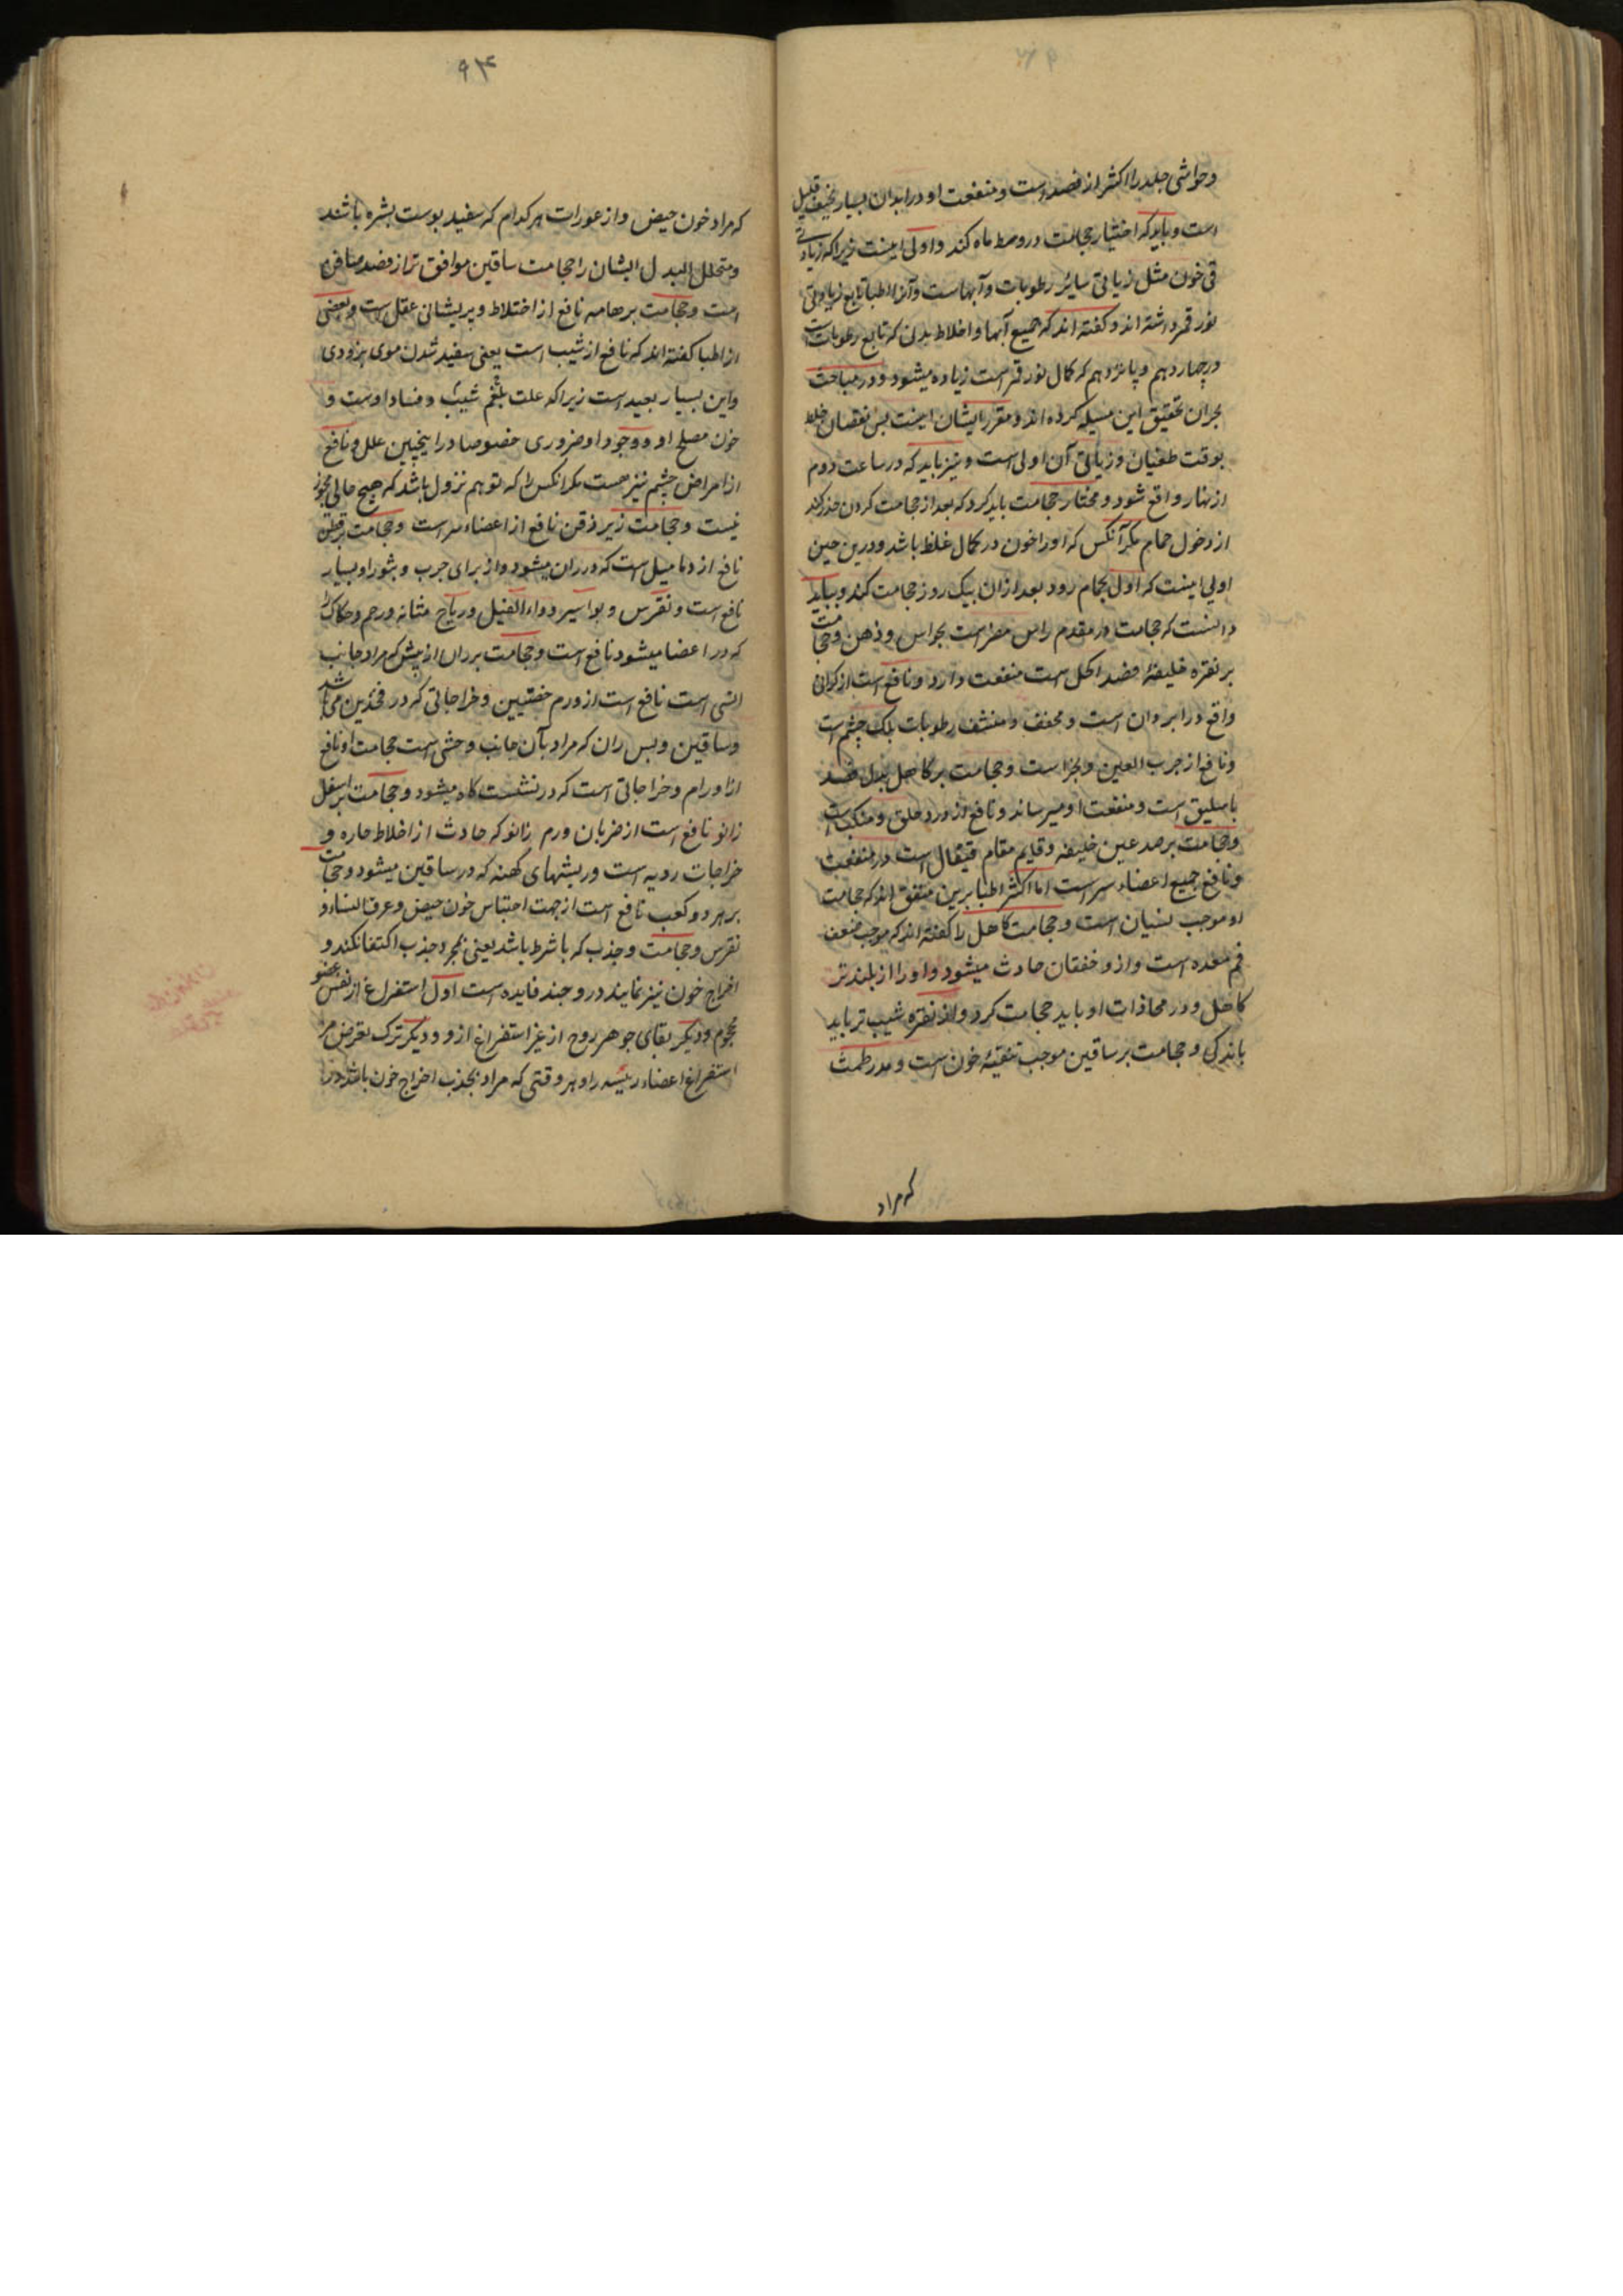 و حواشی جلد را اکثر از فصد است و منفعت او در ابدان بسیار نحیف قلیل
است و باید که اختیار حجامت در وسط ماه کند و اولی اینست زیرا که زیاد
تی خون مثل زیادتی سایر رطوبات و آبهاست و آنرا اطبا تابع زیادتی
نور قمر داشته اند و گفته اند که جمیع آبها و اخلاط بدنی که تابع رطوبات است
در چهاردهم و پانزدهم که کمال نور قمر است زیاده میشود و در مباحث
بحران تحقیق این مسیله کرده اند و مقرر ایشان اینست پس نقصان خلط
بوقت طغیان و زیادتی آن اولی است و نیز باید که در ساعت دوم
از نهار واقع شود و مختار حجامت باید کرد که بعد از حجامت کردن حذر کند
از دخول حمام مکر آنکس که او را خون در کمال غلظ باشد و درین حین
اولی اینست که اول بحمام رود بعد از ان بیک روز حجامت کند و بباید
دانست که حجامت در مقدم راس مضر است بحواس و ذهن و حجامت
بر نقره خلیفهٔ فصد اکحل است منفعت دارد و نافع است از کرانی
واقع در ابروان است و مجفف و منشف رطوبات پلک چشم است
و نافع از جرب العین و بخر است و حجامت بر کاهل بدل فصد
باسلیق است و منفعت او میرساند و نافع از درد حلق و منکب است
و حجامت بر صدغین خلیفه و قایم مقام قیفال است در منفعت
و نافع جمیع اعضاء سر است اما اکثر اطبا برین متفق اند که حجامت
او موجب نسیان است و حجامت کاهل را گفته اند که موجب ضعف
فم معده است و ازو خفقان حادث میشود و او را از بلندتر
کاهل و در محاذات او باید حجامت کرد و از نقره شیب تر باید
باندکی و حجامت بر ساقین موجب تنقیهٔ خون است و مدر طمث
که مراد
۹۴
که مراد خون حیض و از عورات هر کدام که سفید پوست بشره باشند
و متخلل البدل ایشان را حجامت ساقین موافق تر از فصد صافن
است و حجامت بر هامه نافع از اختلاط و پریشانی عقل است و بعضی
از اطبا گفته اند که نافع از شیب است یعنی سفید شدن موی بزودی
و این بسیار بعید است زیرا که علت بلغم شیب و فساد اوست و
خون مصلح او و وجود او ضروری خصوصا در اینچنین علل و نافع
از امراض چشم نیز هست مکر انکس را که توهم نزول باشد که هیچ حالی مجوز
نیست و حجامت زیر ذقن نافع از اعضاء سر است و حجامت بر قطن
نافع از دمامیل است که در ران میشود و از برای جرب و بثور او بسیار
نافع است و نقرس و بواسیر و داء الفیل و ریاح مثانه و رحم و حکاک را
که در اعضا میشود نافع است و حجامت بر ران از پیش که مراد جانب
انسی است نافع است از ورم خصیتین و خراجاتی که در فخذین می باشد
و ساقین و پس ران که مراد بآن جانب وحشی است حجامت او نافع
از اورام و خراجاتی است که در نشستکاه میشود و حجامت بر اسفل
زانو نافع است از ضربان ورم زانو که حادث از اخلاط حاره و
خراجات ردیه است و ریشهای کهنه که در ساقین میشود و حجامت
بر هر دو کعب نافع است از جهت احتباس خون حیض و عرق النساء و
نقرس و حجامت و جذب که با شرط باشد یعنی بمجرد جذب اکتفا نکند و
اخراج خون نیز نمایند درو چند فایده است اول استفراغ از نفس عضو
محجوم و دیکر بقای جوهر روح از غیر استفراغ ازو و دیکر ترک تعرض مر
استفراغ اعضاء رئیسه را و هر وقتی که مراد بجذب اخراج خون باشد